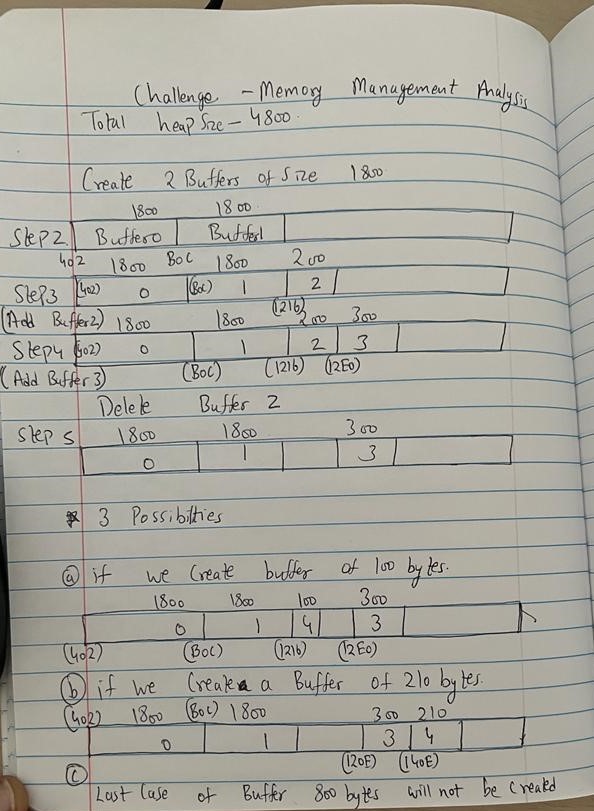 Challenge - Memory Management Analysis
Total heap Size - 4800.
Create 2 Buffers of Size 1800
1800 1800
Step 2 Buffer0 Buffer1
402 1800 BOC 1800 200
Step3 (402) 0 (BOC) 1 2
(Add Buffer2) 1800 1800 (1216) 200 300
Step4 (402) 0 1 2 3
(Add Buffer 3) (BOC) (1216) (12E0)
Delete Buffer 2
Step 5 1800 1800 300
0 1 3
* 3 Possibilties
(a) if we create buffer of 100 bytes.
1800 1800 100 300
0 1 4 3
(402) (BOC) (1216) (12E0)
(b) if we Create a Buffer of 210 bytes.
(402) 1800 (BOC) 1800 300 210
0 1 3 4
(120E) (140E)
(c)
Last Case of Buffer 800 bytes will not be created